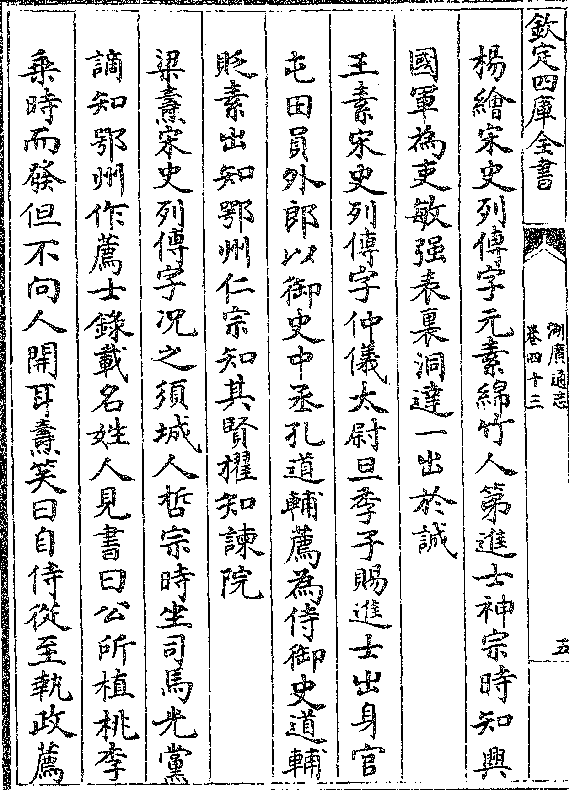 欽定四庫全書
湖廣通志
卷四十三
五
楊繪宋史列傳字元素綿竹人第進士神宗時知興
國軍為吏敏强表裏洞達一出於誠
王素宋史列傳字仲儀太尉旦季子賜進士出身官
屯田員外郎以御史中丞孔道輔薦為侍御史道輔
貶素出知鄂州仁宗知其賢擢知諫院
梁燾宋史列傳字况之須城人哲宗時坐司馬光黨
謫知鄂州作薦士錄載名姓人見書曰公所植桃李
乘時而發但不向人開耳燾笑曰自侍從至執政薦